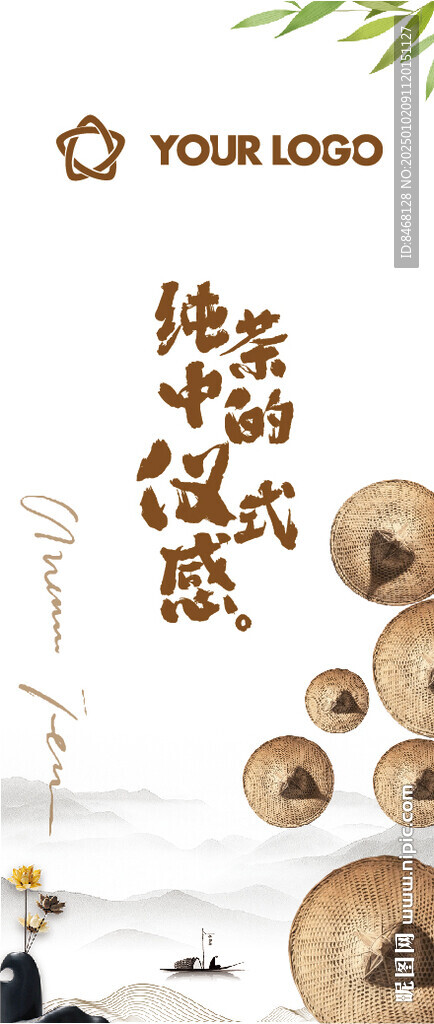 YOUR LOGO
纯茶
中的
仪式
感。
ID:8468128 NO:20250102091120151127
昵图网 www.nipic.com